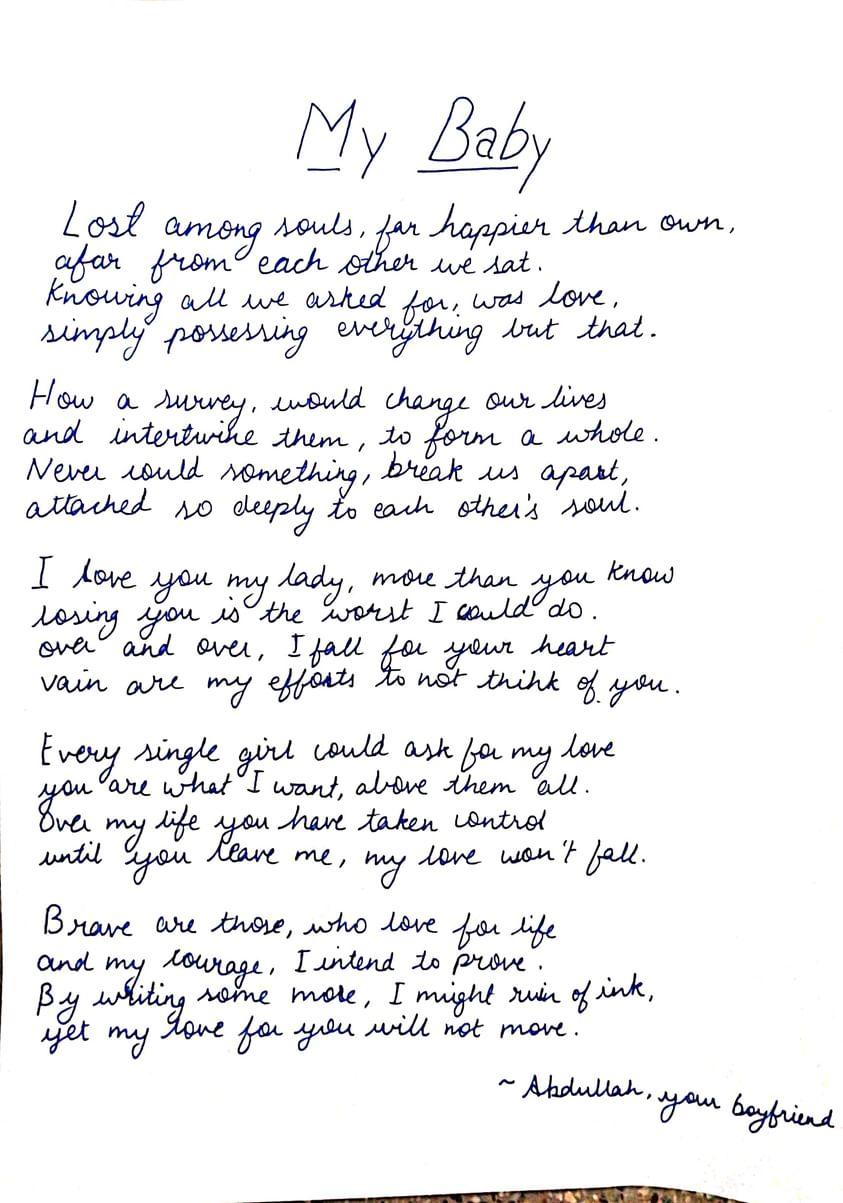 My Baby
Lost among souls, far happier than own,
afar from each other we sat.
Knowing all we asked for, was love,
simply possessing everything but that.
How a survey, would change our lives
and intertwine them, to form a whole.
Never could something, break us apart,
attached so deeply to each other's soul.
I love you my lady, more than you know
losing you is the worst I could do.
over and over, I fall for your heart
vain are my efforts to not think of you.
Every single girl could ask for my love
you are what I want, above them all.
Over my life you have taken control
until you leave me, my love won't fall.
Brave are those, who love for life
and my courage, I intend to prove.
By writing some more, I might ruin of ink,
yet my love for you will not move.
~ Abdullah, your boyfriend